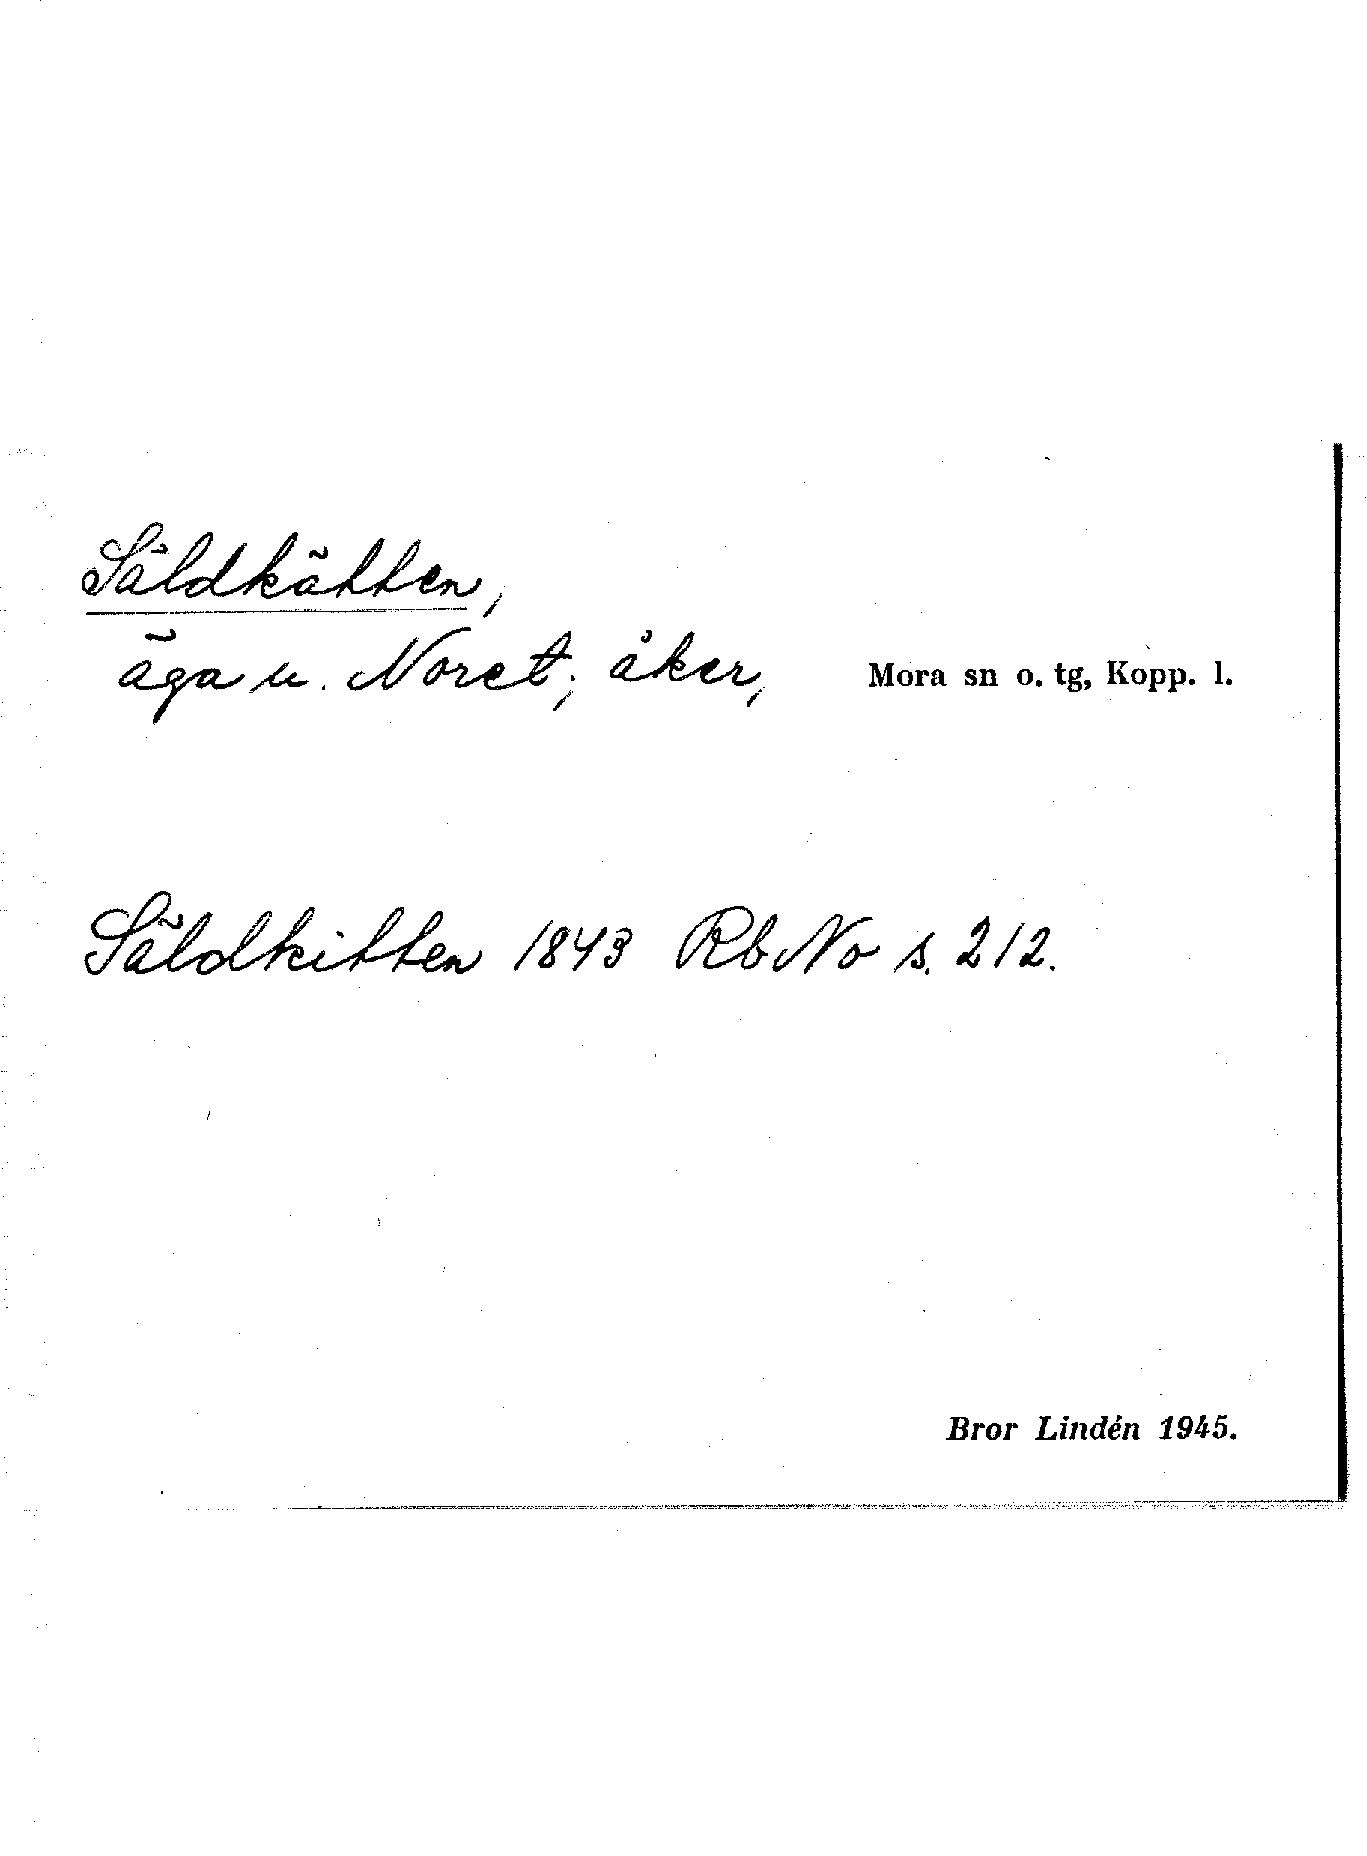 Säldkätten,
äga u. Noret; åker, Mora sn o. tg, Kopp. l.
Säldkitten 1843 RbNo s. 212.
Bror Lindén 1945.